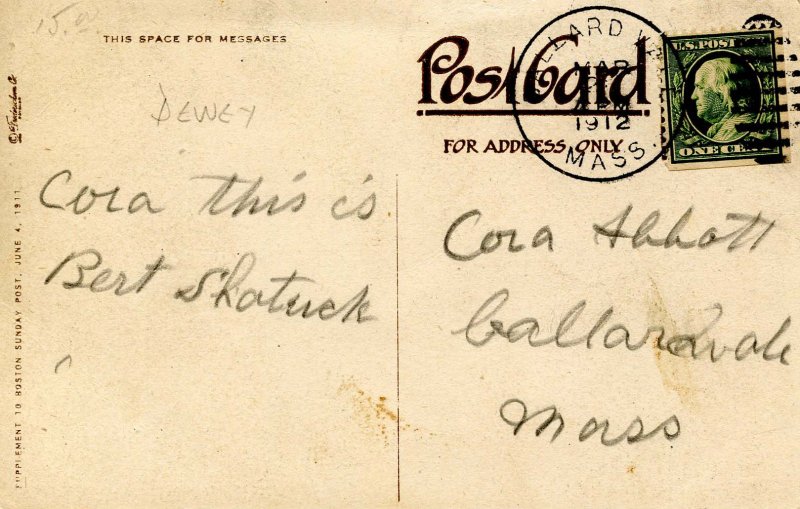 15.00
THIS SPACE FOR MESSAGES
DEWEY
Cora this is
Bert Shatuck
SUPPLEMENT TO BOSTON SUNDAY POST, JUNE 4, 1911.
Post Card
FOR ADDRESS ONLY
LLARD V
MAR
PM
1912
MASS.
U.S. POST
ONE CENT
Cora Abbott
Ballardvale
Mass